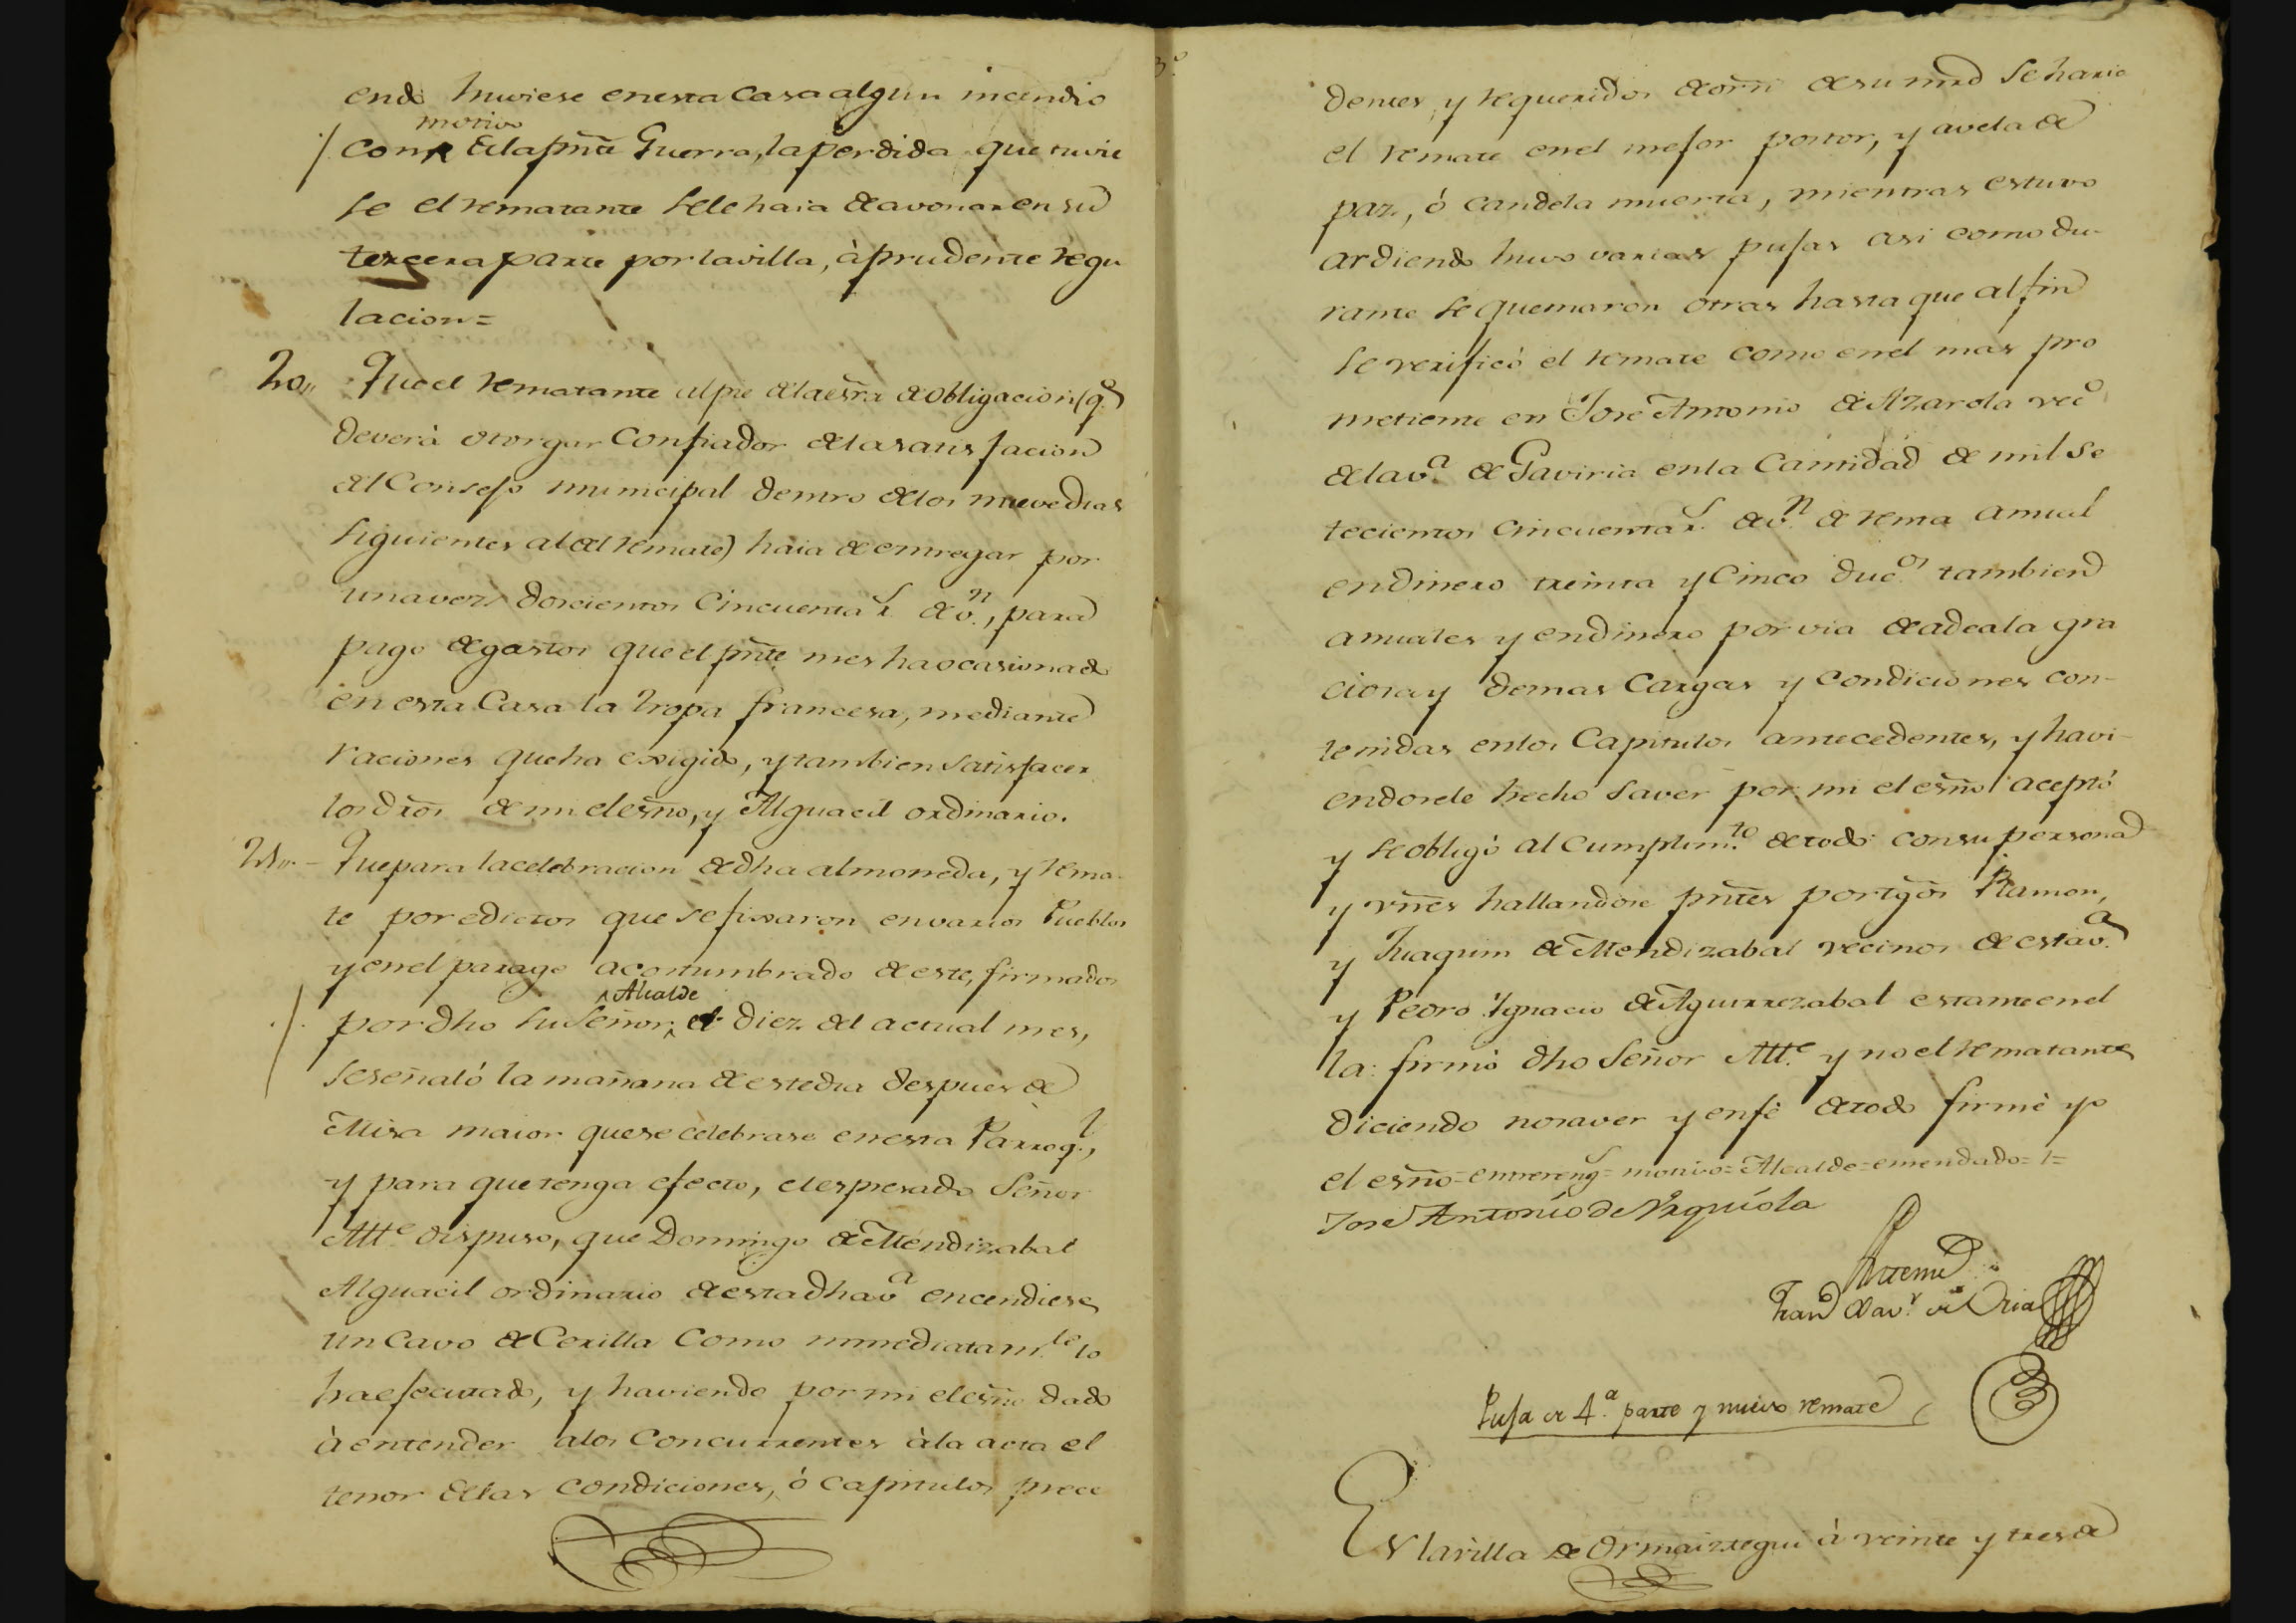 endo huviese en esta Casa algun incendio
motivo
con el de la pñte Guerra, la perdida que tuvie
se el rematante se le haia de avonar en su
tercera parte por la villa, à prudente regu
lacion=
20,, Que el rematante al pie de la esrã de obligacion (qe
deverà otorgar con fiador de la satisfacion
del Consejo municipal dentro de los nueve dias
siguientes al del remate) haia de entregar por
una vez doscientos cincuenta rs de vn, para
pago de gastos que el pñte mes ha ocasionado
en esta Casa la tropa francesa, mediante
raciones que ha exigido, y tambien satisfacer
los drõs de mi el esño, y Alguacil ordinario.
21,,- Que para la celebracion de dha almoneda, y rema-
te por edictos que se fixaron en varios Pueblos
y en el parage acostumbrado de este, firmados
Alcalde
por dho su Señor, el diez del actual mes,
se señaló la mañana de este dia despues de
Misa maior que se celebrase en esta Parroql,
y para que tenga efecto, el espresado Señor
Alle dispuso, que Domingo de Mendizabal
Alguacil ordinario de esta dha va encendiese
un cavo de Cerilla como inmediatamte lo
ha efecutado, y haviendo por mi el esño dado
à entender a los Concurrentes à la acta el
tenor de las condiciones, ò capitulos prece
dentes, y requeridos de orñ de su mrd se haria
el remate en el mejor postor, y a vela de
paz, ó candela muerta, mientras estuvo
ardiendo huvo varias pujas asi como du-
rante se quemaron otras hasta que al fin
se verificó el remate como en el mas pro
metiente en José Antonio de Azarola veco
de la va de Gaviria en la Cantidad de mil se
tecientos cincuenta rs de vn de renta anual
en dinero treinta y Cinco ducos tambien
anuales y en dinero por via de adeala gra
ciosa y demas Cargas y condiciones con-
tenidas en los Capitulos antecedentes, y havi-
endosele hecho saver por mi el esño aceptó
y se obligó al cumplimto de todo con su persona
y vñes hallandose pñtes por tgõs Ramon,
y Juaquin de Mendizabal vecinos de esta va
y Pedro Ygnacio de Aguirrezabal estante en el
la: firmò dho Señor Alle y no el rematante
diciendo no saver y en fè de todo firmè yo
el esño=entrerengs=motivo=Alcalde=emendado=l=
Jose Antonio de Yrguiola
Ante mi
de Oria
Puja de 4.a parte y nuevo remate
En la villa de Ormaiztegui à veinte y tres de